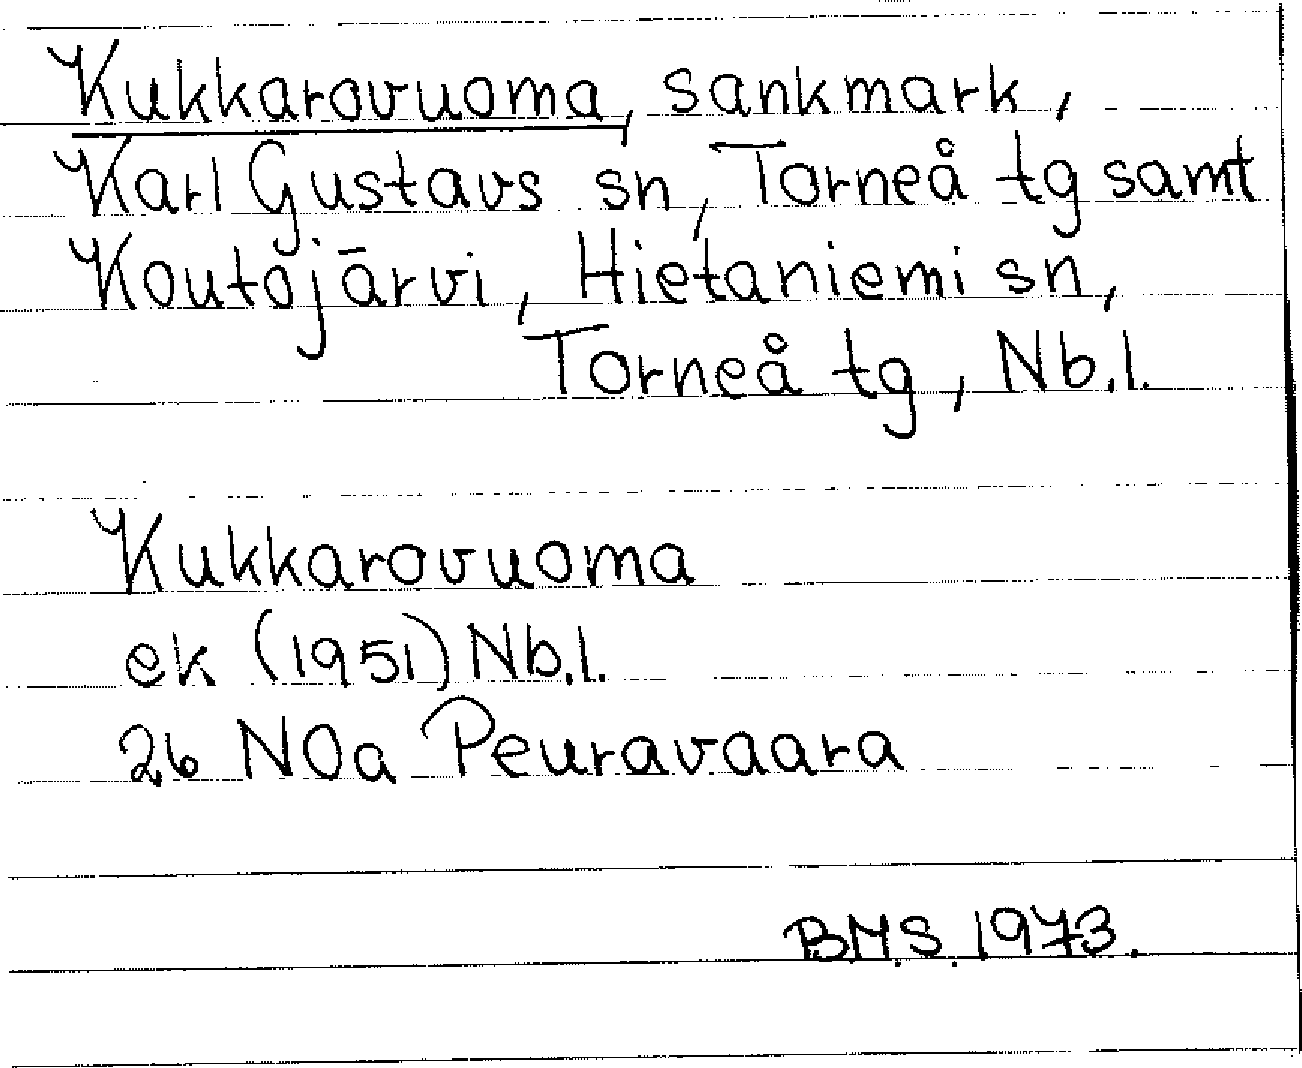 Kukkarovuoma, sankmark,
Karl Gustavs sn, Torneå tg samt
Koutojärvi, Hietaniemi sn,
Torneå tg, Nb.l.
Kukkarovuoma
ek (1951) Nb.l.
26 NOa Peuravaara
B.M.S. 1973.